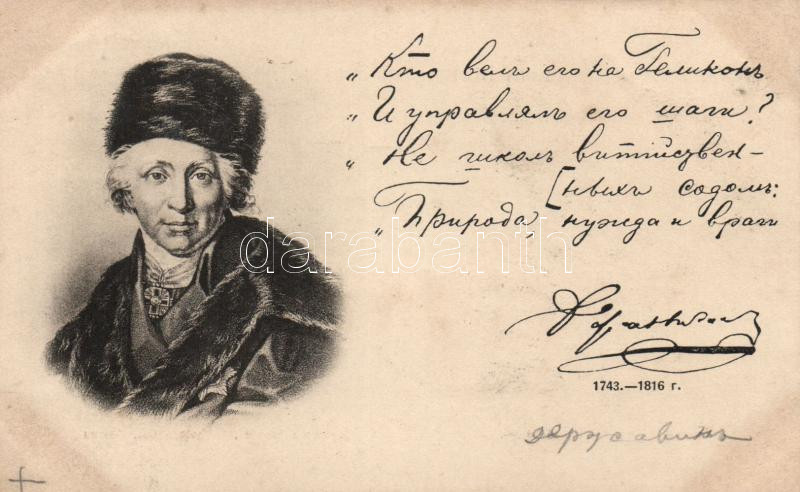 „Кто велъ его на Геликонъ
„И управлялъ его шаги?
„Не школъ витійствен-
[ныхъ содомъ:
„Природа, нужда и враги
darabanth
Державинъ
1743.—1816 г.
державинъ